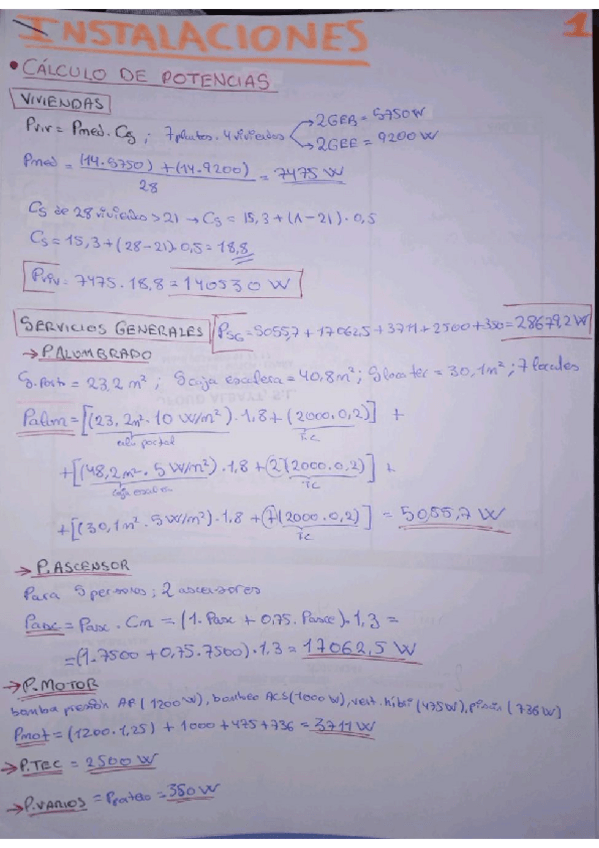 INSTALACIONES
1
• CÁLCULO DE POTENCIAS
VIVIENDAS
Pviv = Pmed · Cs ; 7 plantas · 4 viviendas → 2GEB = 5750W
→ 2GEE = 9200 W
Pmed = (14·5750) + (14·9200) / 28 = 7475 W
Cs de 28 viviendas > 21 → Cs = 15,3 + (n - 21) · 0,5
Cs = 15,3 + (28 - 21) · 0,5 = 18,8
Pviv = 7475 · 18,8 = 140530 W
SERVICIOS GENERALES PSG = 5055,7 + 17062,5 + 3711 + 2500 + 350 = 28679,2 W
→ P.ALUMBRADO
S. Porta = 23,2 m²; S caja escalera = 40,8 m²; S loca tec = 30,1 m²; 7 locales
Palum = [(23,2m² · 10 W/m²) · 1,8 + (2000 · 0,2)] +
portal TC
+ [(48,2m² · 5 W/m²) · 1,8 + 2(2000 · 0,2)] +
caja escalera TC
+ [(30,1m² · 5 W/m²) · 1,8 + 7(2000 · 0,2)] = 5055,7 W
TC
→ P.ASCENSOR
Para 5 personas; 2 ascensores
Pasc = Pasc · Cm = (1 · Pasc + 0,75 · Pasc) · 1,3 =
= (1 · 7500 + 0,75 · 7500) · 1,3 = 17062,5 W
→ P.MOTOR
bomba presión AF (1200W), bombeo ACS (1000 W), vent. hibri (475W), piscin (736W)
Pmot = (1200 · 1,25) + 1000 + 475 + 736 = 3711 W
→ P.TEC = 2500 W
→ P.VARIOS = = 350 W